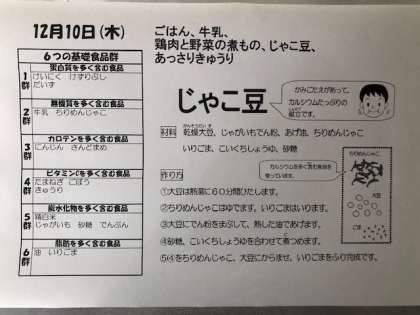 12月10日(木)
ごはん、牛乳、
鶏肉と野菜の煮もの、じゃこ豆、
あっさりきゅうり
6つの基礎食品群
1群
蛋白質を多く含む食品
けいにく けずりぶし
だいず
2群
無機質を多く含む食品
牛乳 ちりめんじゃこ
3群
カロテンを多く含む食品
にんじん さんどまめ
4群
ビタミンCを多く含む食品
たまねぎ ごぼう
きゅうり
5群
炭水化物を多く含む食品
精白米
じゃがいも 砂糖 でんぷん
6群
脂肪を多く含む食品
油 いりごま
じゃこ豆
かみごたえがあって、
カルシウムたっぷりの
献立です。
材料
乾燥大豆、じゃがいもでん粉、あげ油、ちりめんじゃこ
かんそうだいず
いりごま、こいくちしょうゆ、砂糖
カルシウムを多く含む食品を
使っています。
作り方
①大豆は熱湯に60分間ひたします。
②ちりめんじゃこはゆでます。いりごまはいります。
③大豆にでん粉をまぶして、熱した油であげます。
④砂糖、こいくちしょうゆを合わせて煮つめます。
⑤④をちりめんじゃこ、大豆にからませ、いりごまをふり完成です。
ちりめんじゃこ
大豆
ごま